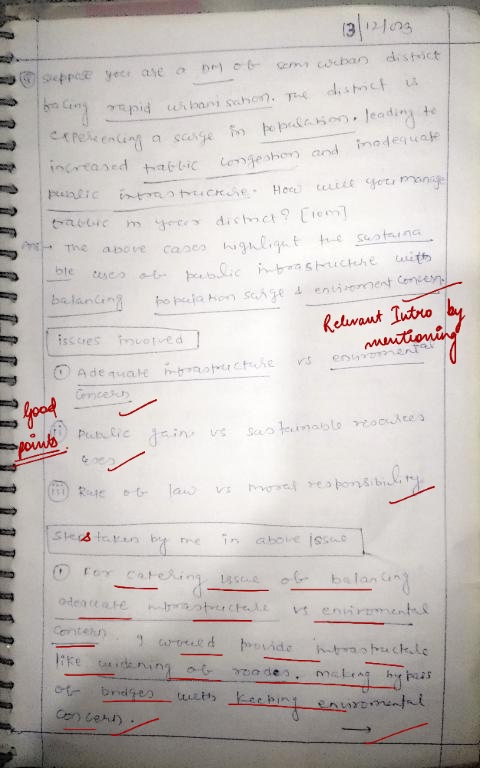 13/12/023
Q Suppose you are a DM of semi urban district
facing rapid urbanisation. The district is
experiencing a surge in population. leading to
increased traffic congestion and inadequate
public infrastructure. How will you manage
traffic in your district? [10m]
Ans → The above cases highlight the sustaina
ble uses of public infrastructure with
balancing population surge & enviroment concern.
Relevant Intro by
mentioning
issues involved
(i) Adequate infrastructure vs enviromental
concern
Good
points
(ii) Public gain vs sustainable resources
uses
(iii) Rule of law vs moral responsibility
Steps taken by me in above issue
(i) For catering issue of balancing
adequate infrastructure vs enviromental
concern. I would provide infrastructure
like widening of roades, making bypass
of bridges with keeping enviromental
concern. →